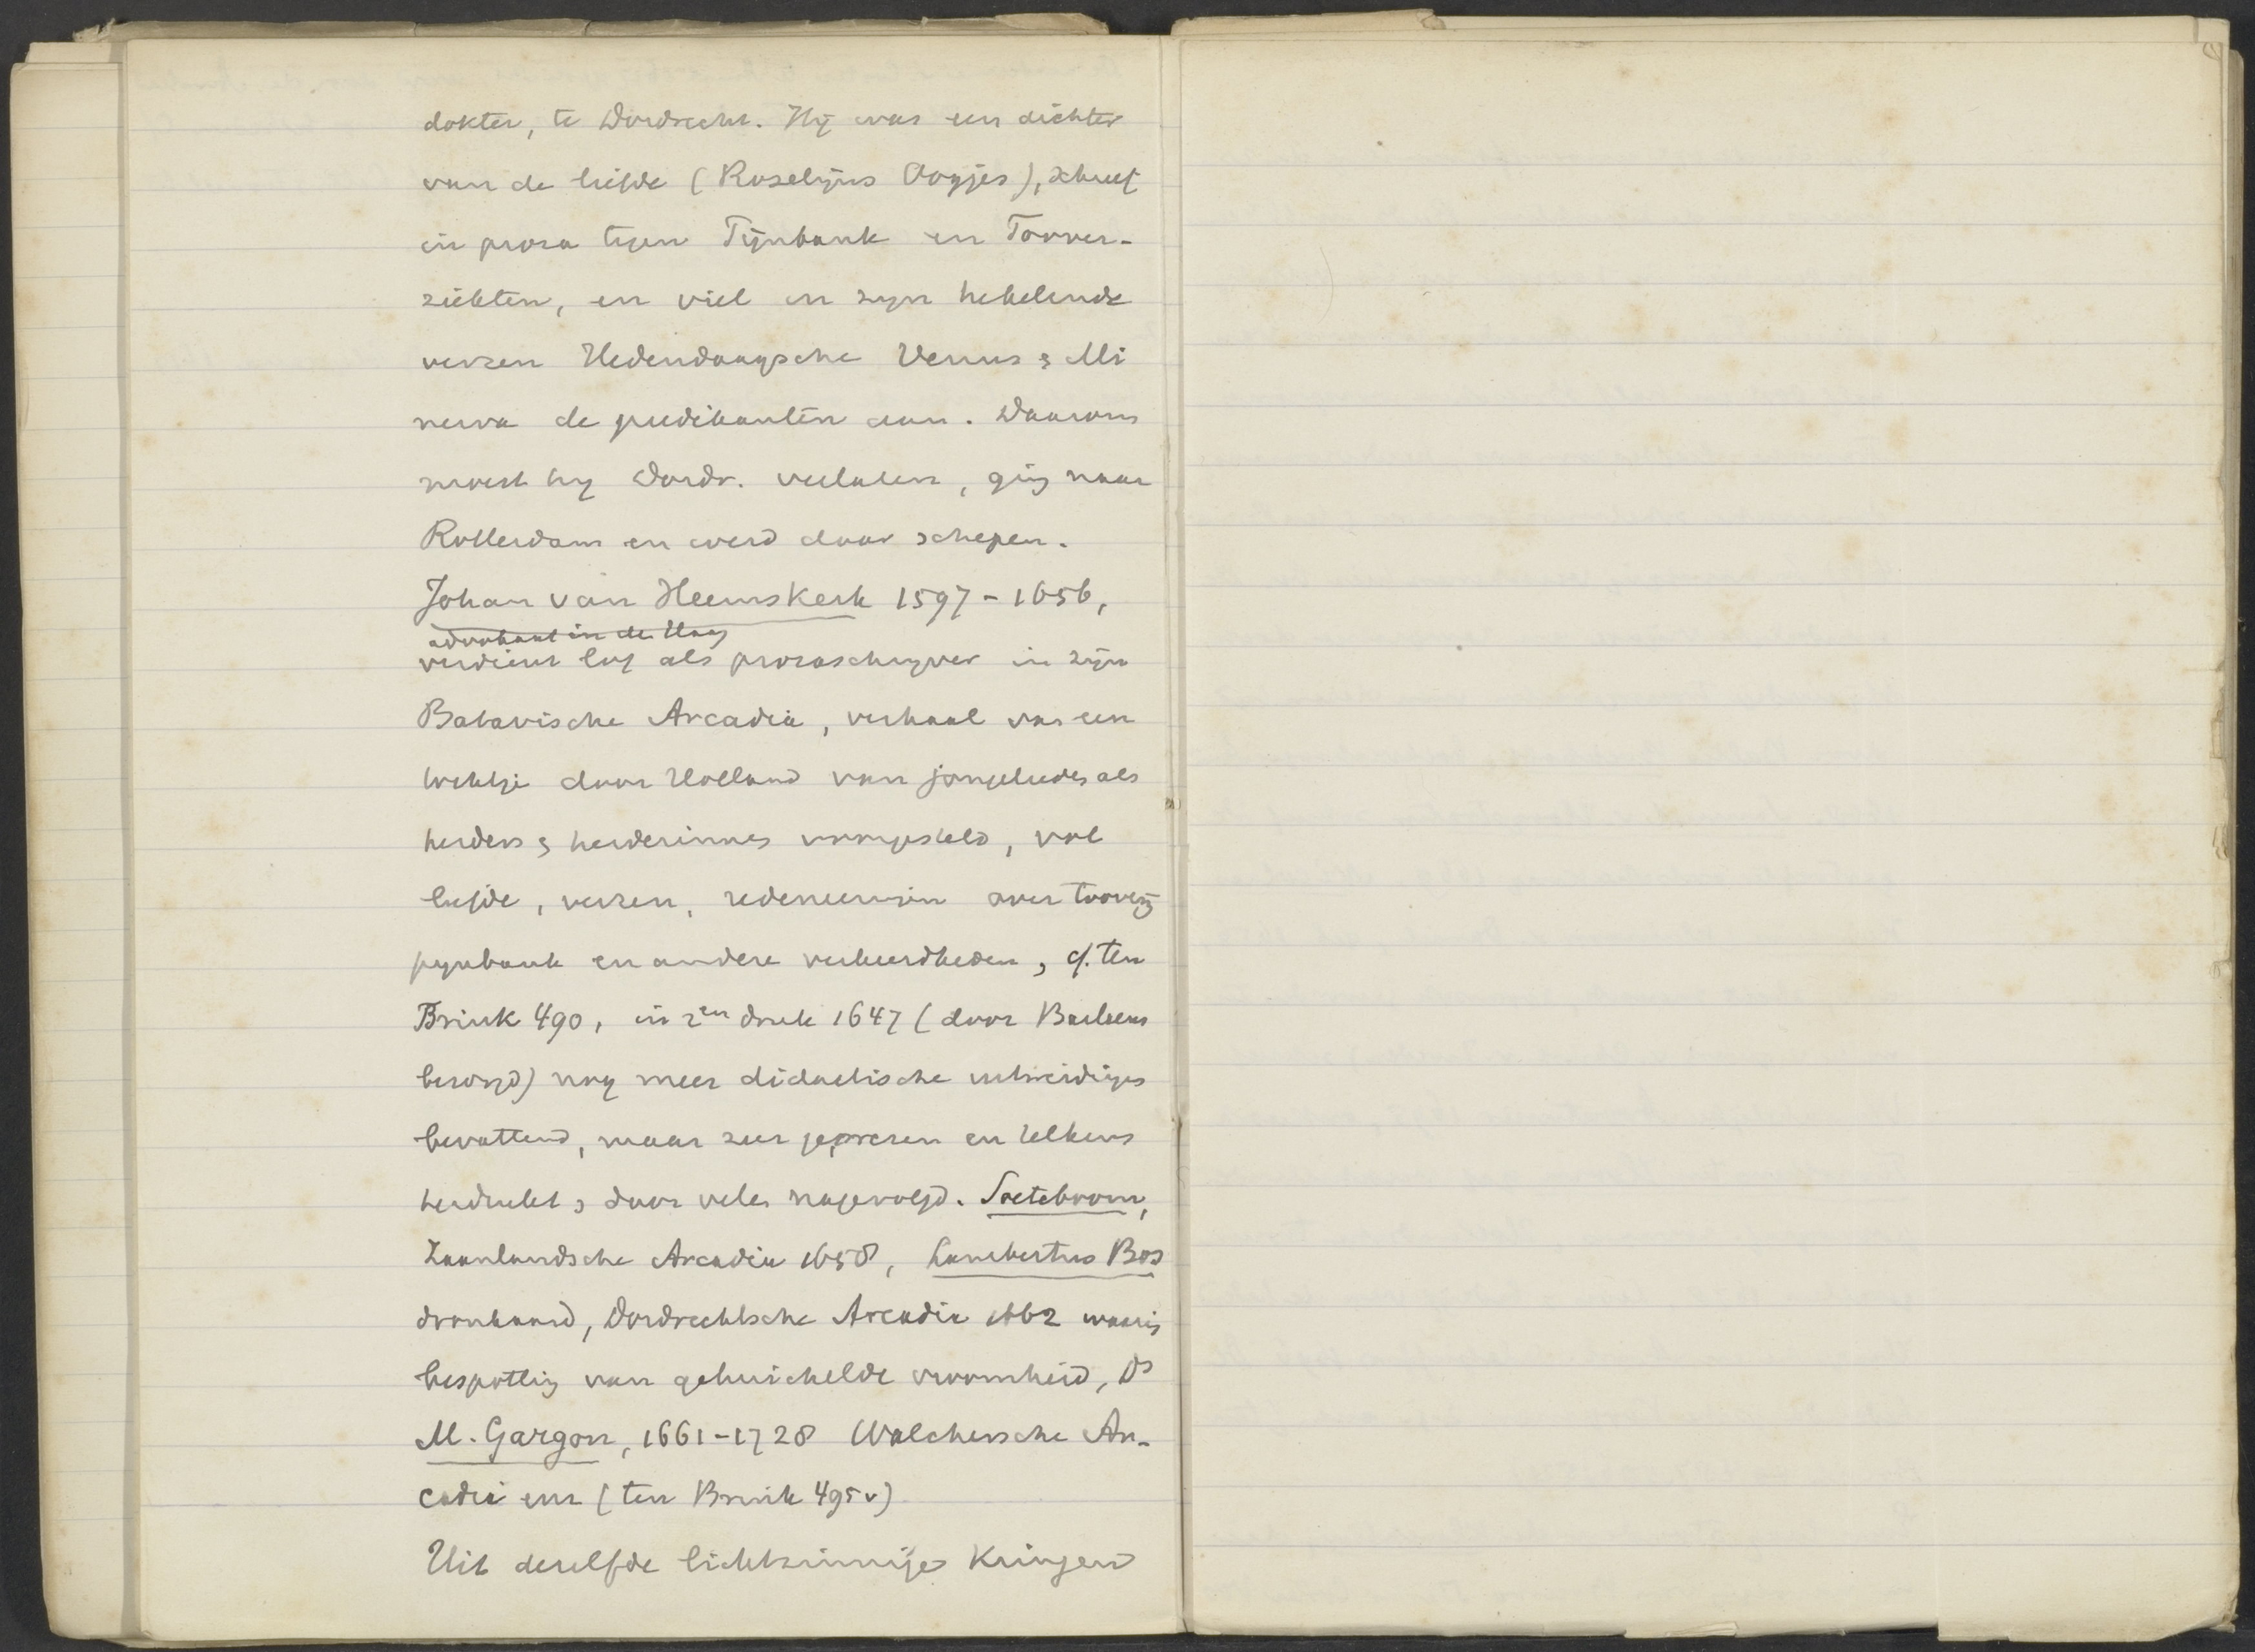 dokter, te Dordrecht. Hij was een dichter
van de liefde (Roselijns Oogjes), schreef
in proza tegen Pijnbank en Toover-
ziekten, en viel in zijn hekelende
verzen Hedendaagsche Venus & Mi
nerva de predikanten aan. Daarom
moest hij Dordr. verlaten, ging naar
Rotterdam en werd daar schepen.
Johan van Heemskerk 1597-1656,
advokaat in de Haag
verdient lof als prozaschrijver in zijn
Batavische Arcadia, verhaal van een
tochtje door Holland van jongelieden als
herders & herderinnes voorgesteld, vol
liefde, verzen, redeneeringen over toverij
pijnbank en andere verkeerdheden, cf. ten
Brink 490, in 2en druk 1647 (door Barlaeus
bezorgd) nog meer didactische uitweidinges
bevattend, maar zeer geprezen en telkens
herdrukt & door velen nagevolgd. Soeteboom,
Zaanlandsche Arcadia 1658, Lambertus Bos
dronkaard, Dordrechtsche Arcadia 1662 waarin
bespotting van gehuichelde vroomheid, Ds
M. Gargon, 1661-1728 Walchersche Ar-
cadia enz (ten Brink 495v)
Uit dezelfde lichtzinnige Kringen